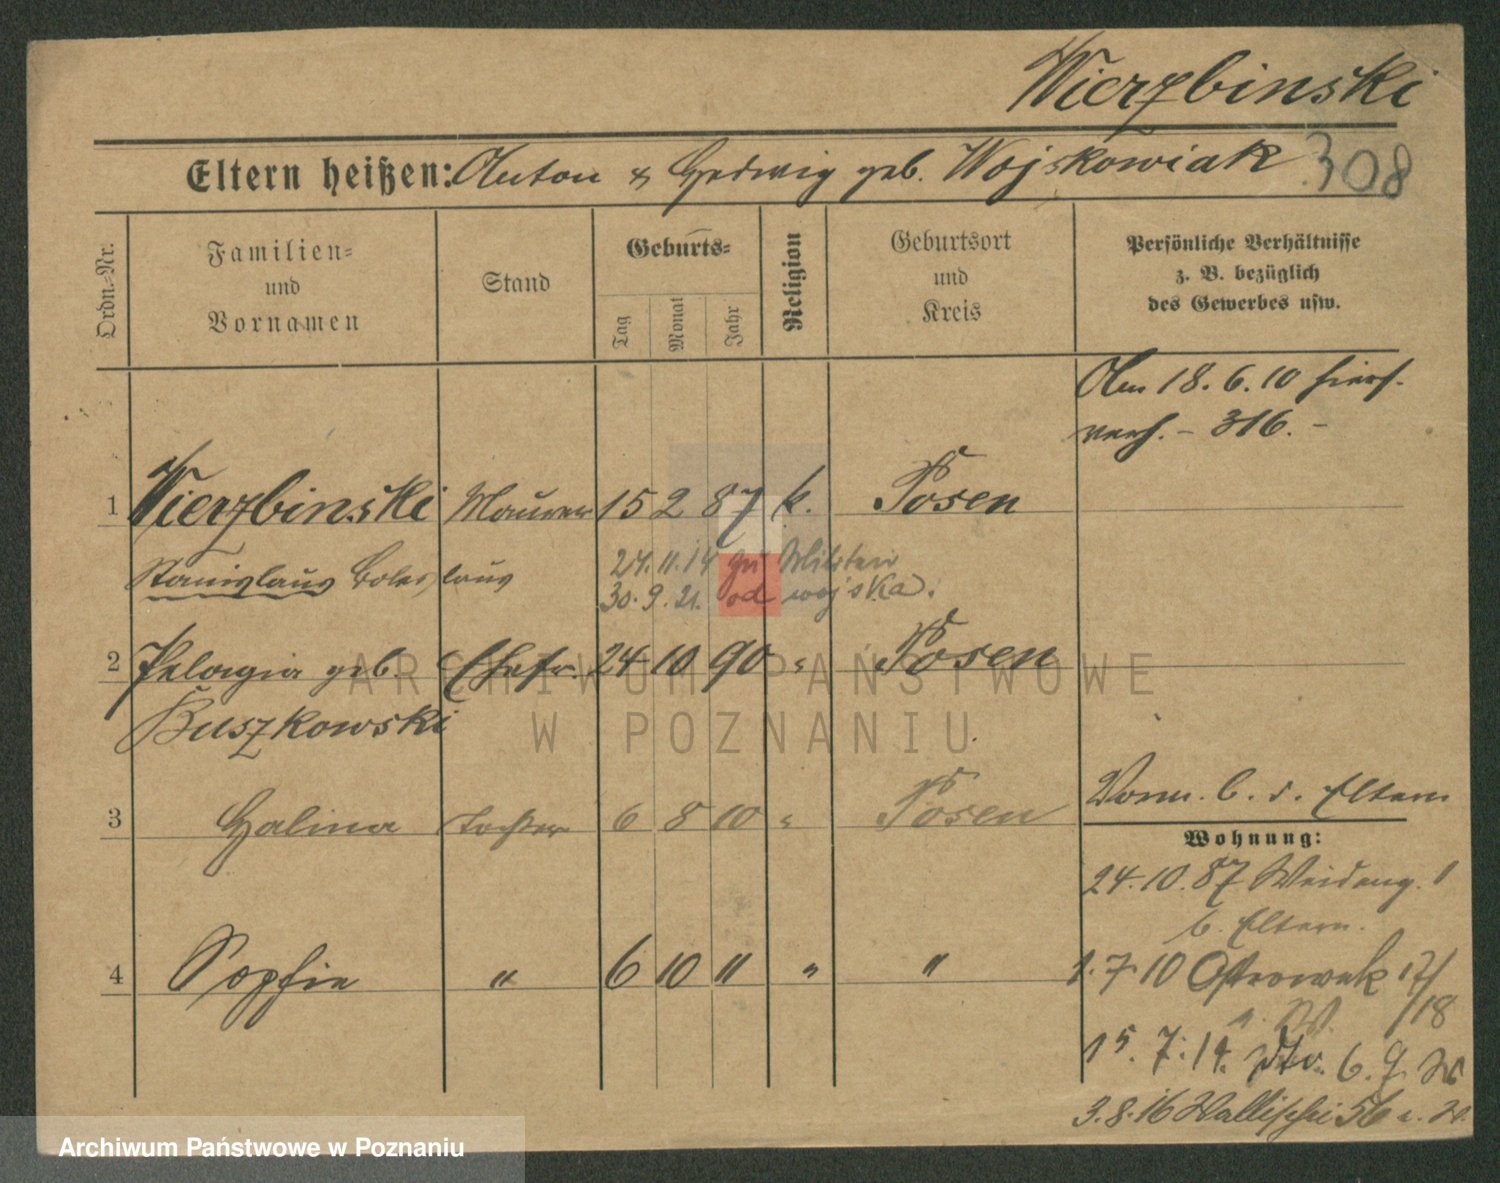 Wierzbinski
Eltern heißen: Anton & Hedwig geb. Wojskowiak 308
Ordn.-Nr.
Familien-
und
Vornamen
Stand
Geburts-
Tag
Monat
Jahr
Religion
Geburtsort
und
Kreis
Persönliche Verhältnisse
z. B. bezüglich
des Gewerbes usw.
Am 18. 6. 10 hiers.
verh. - 316. -
1 Wierzbinski Maurer 15 2 87 k. Posen
Stanislaus Boleslaus
24. 11. 14 zu Militär
30. 9. 21. od wojska.
2 Pelagia geb. Ehefr. 24 10 90 " Posen
Buszkowski
3 Halina Tochter 6 8 10 " Posen
Vorm. b. d. Eltern
Wohnung:
24. 10. 87 Weideng. 1
b. Eltern.
4 Sophie " 6 10 11 " "
1. 7 10 Ostrowek 17/
/18
15. 7. 14. dto. 6. 9.
3. 8. 16 Wallischei 56
ARCHIWUM PAŃSTWOWE
W POZNANIU
Archiwum Państwowe w Poznaniu